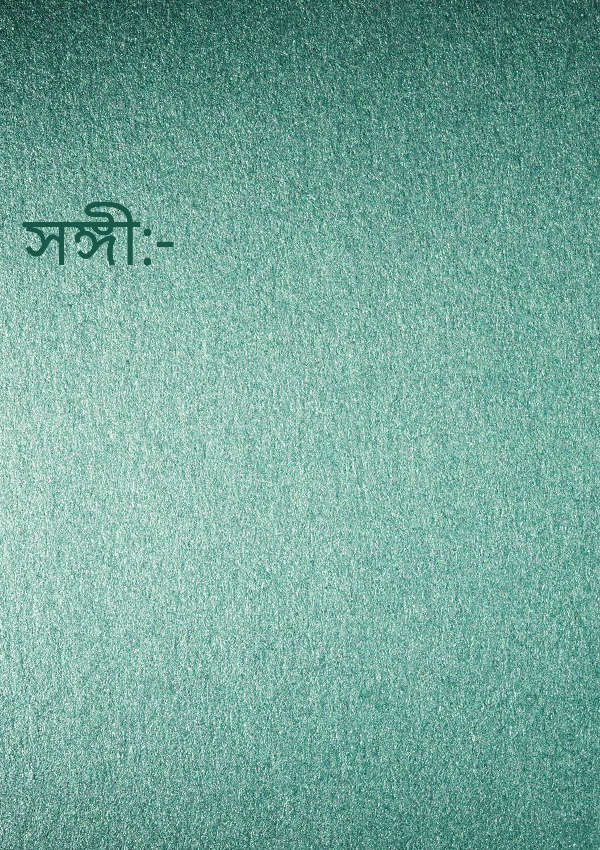 সঙ্গী:-